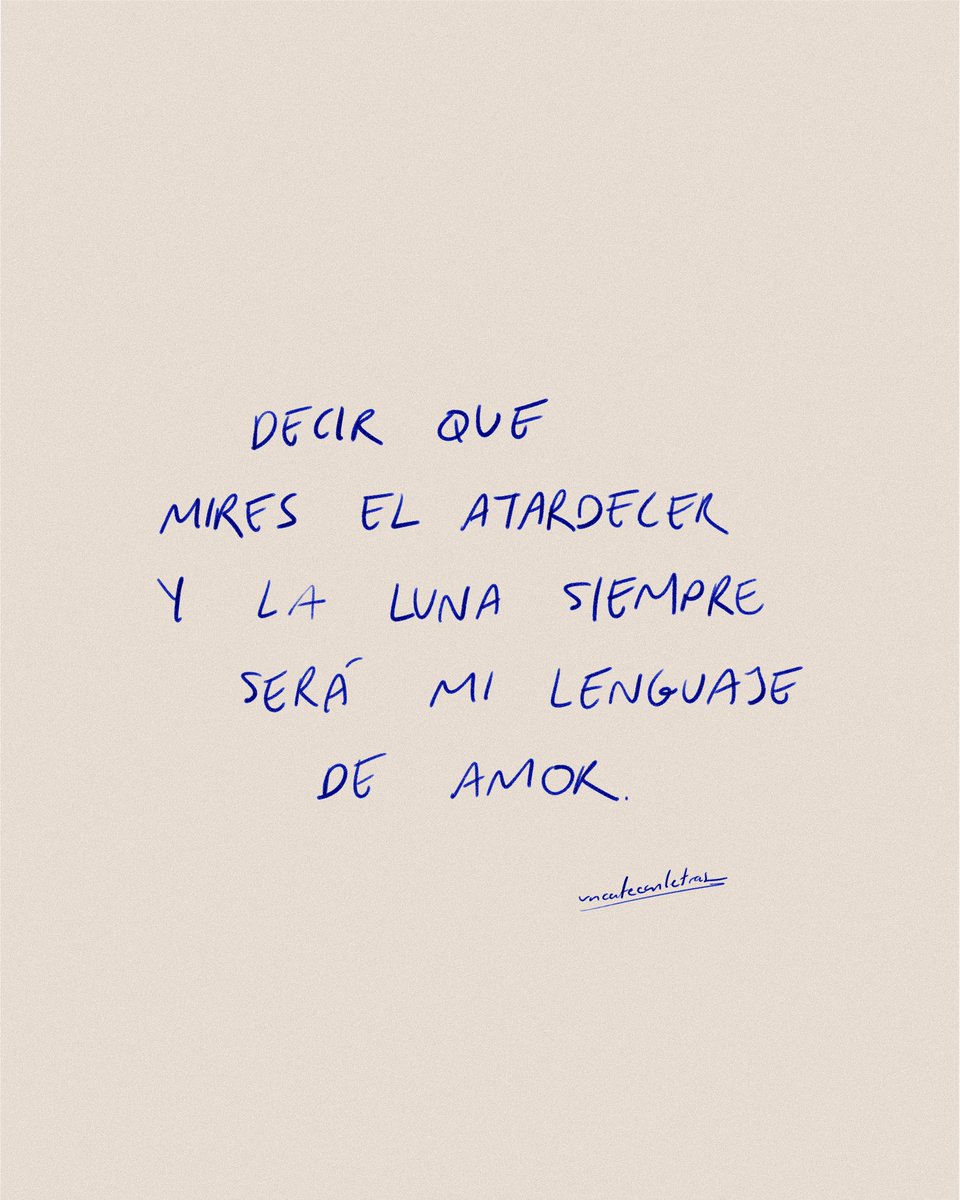 DECIR QUE
MIRES EL ATARDECER
Y LA LUNA SIEMPRE
SERÁ MI LENGUAJE
DE AMOR.
uncafeconletras